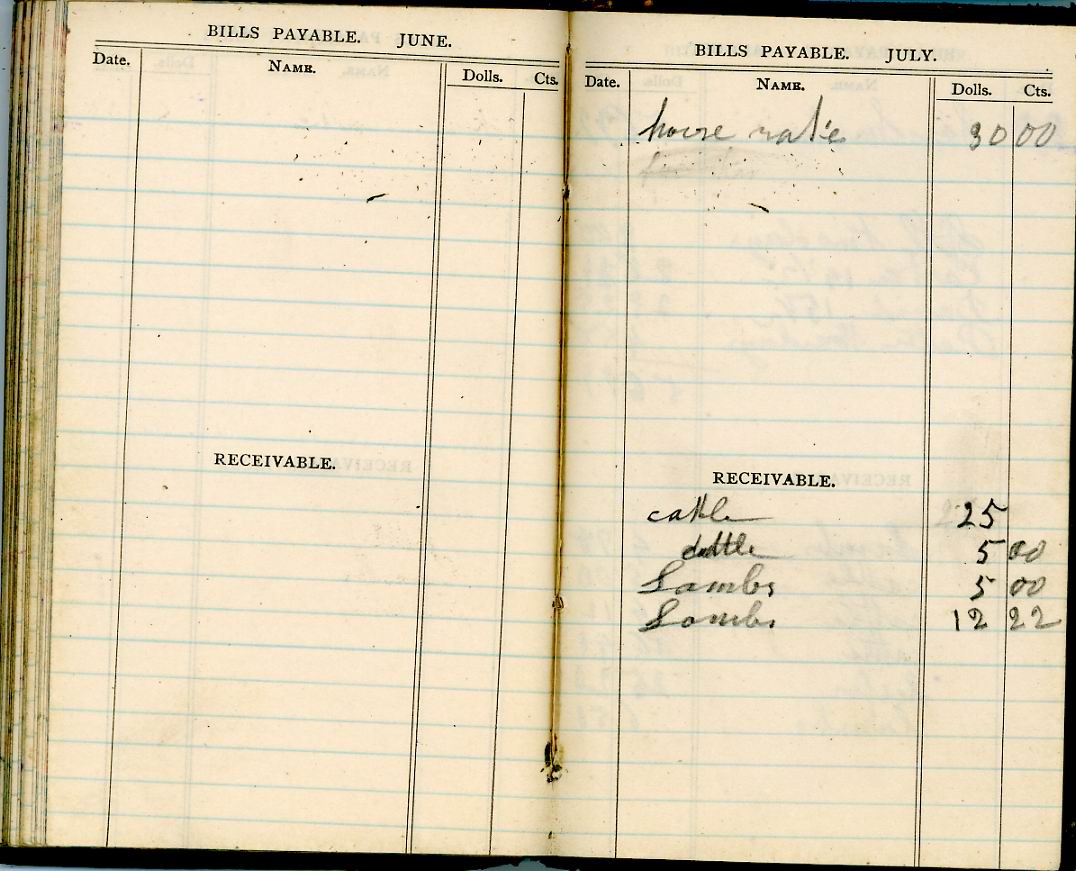 BILLS PAYABLE. JUNE.
Date. NAME. Dolls. Cts.
RECEIVABLE.
BILLS PAYABLE. JULY.
Date. NAME. Dolls. Cts.
horse rake 30 00
RECEIVABLE.
cattle 25
cattle 5 00
Lambs 5 00
Lambs 12 22